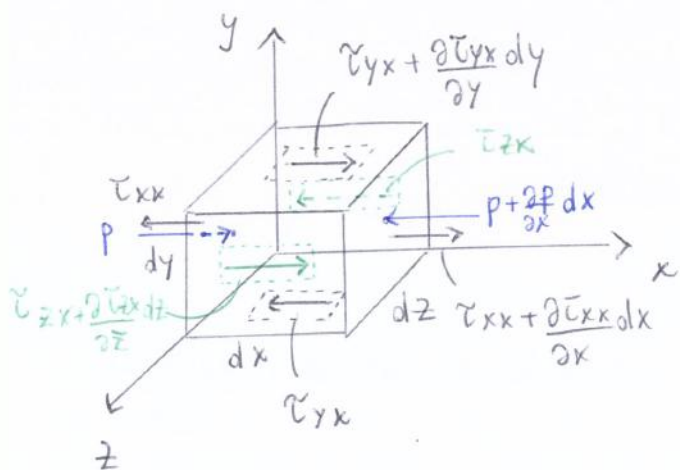 y
τyx + ∂τyx/∂y dy
τzx
τxx
p
p + ∂p/∂x dx
dy
x
τzx + ∂τzx/∂z dz
dz
τxx + ∂τxx/∂x dx
dx
τyx
z